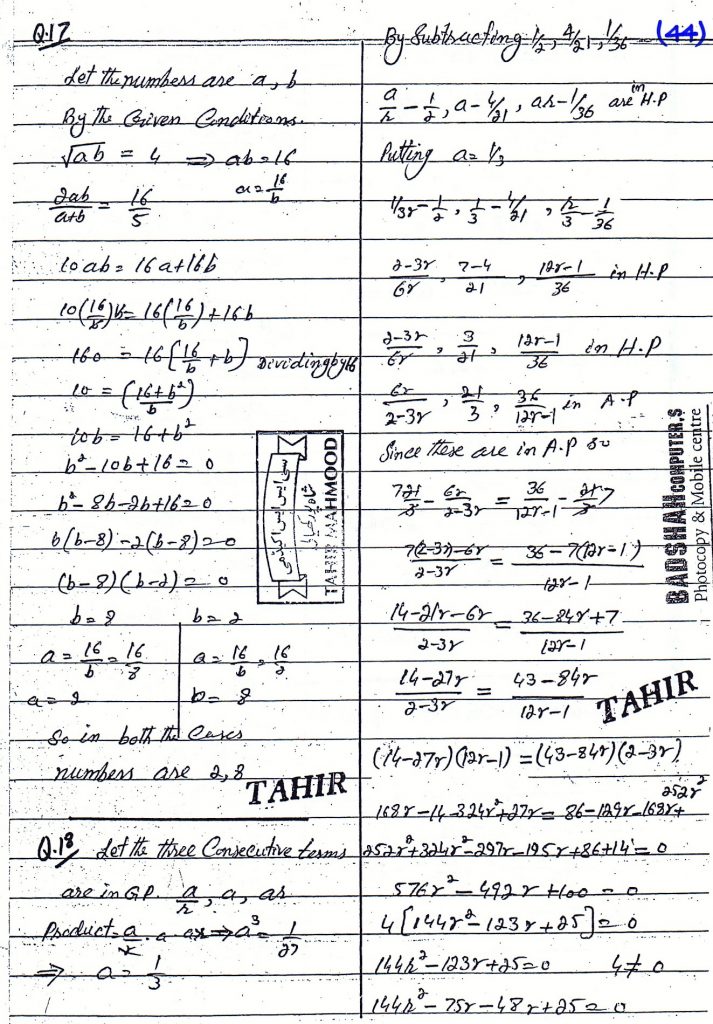 Q.17
Let the numbers are a, b
By the Given Conditions.
√ab = 4 ⇒ ab = 16
a = 16/b
2ab/a+b = 16/5
10ab = 16a+16b
10(16/b)b = 16(16/b)+16b
160 = 16[16/b + b] Dividing by 16
10 = (16+b²/b)
10b = 16+b²
b²-10b+16 = 0
b²-8b-2b+16 = 0
b(b-8)-2(b-8) = 0
(b-8)(b-2) = 0
b = 8 b = 2
a = 16/b = 16/8 a = 16/b = 16/2
a = 2 b = 8
So in both the Cases
numbers are 2, 8
TAHIR
سی ایس ایس اکیڈمی
TAHIR MAHMOOD
Q.18 Let the three Consecutive terms
are in G.P. a/r, a, ar
Product = a/r . a . ar ⇒ a³ = 1/27
⇒ a = 1/3
(44)
By Subtracting 1/2, 4/21, 1/36
a/r - 1/2, a - 4/21, ar - 1/36 are in H.P
Putting a = 1/3
1/3r - 1/2, 1/3 - 4/21, r/3 - 1/36
2-3r/6r, 7-4/21, 12r-1/36 in H.P
2-3r/6r, 3/21, 12r-1/36 in H.P
6r/2-3r, 21/3, 36/12r-1 in A.P
Since these are in A.P so
7 21/3 - 6r/2-3r = 36/12r-1 - 21/3 7
7(2-3r)-6r/2-3r = 36-7(12r-1)/12r-1
14-21r-6r/2-3r = 36-84r+7/12r-1
14-27r/2-3r = 43-84r/12r-1
TAHIR
(14-27r)(12r-1) = (43-84r)(2-3r)
168r-14-324r²+27r = 86-129r-168r+252r²
252r²+324r²-297r-195r+86+14 = 0
576r²-492r+100 = 0
4[144r²-123r+25] = 0
144r²-123r+25 = 0 4≠0
144r²-75r-48r+25 = 0
BADSHAH COMPUTER,S
Photocopy & Mobile centre